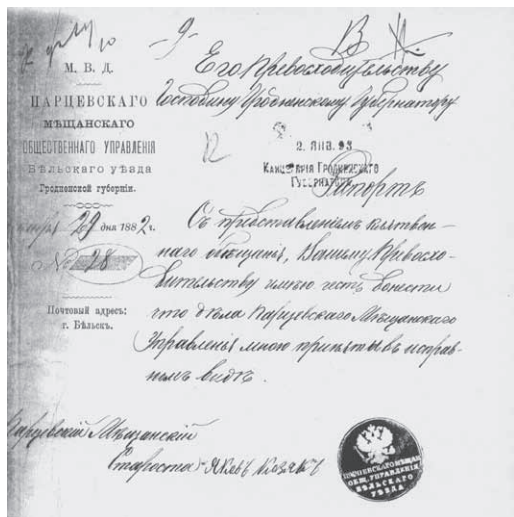 9
В
М. В. Д.
ПАРЦЕВСКАГО
МѢЩАНСКАГО
ОБЩЕСТВЕННАГО УПРАВЛЕНІЯ
Бѣльскаго уѣзда
Гродненской губерніи.
29 дня 1882 г.
№ 28
Почтовый адресъ:
г. Бѣльскъ.
Его Превосходительству
Господину Гродненскому Губернатору
2. ЯНВ. 93
Канцелярія Гродненскаго
Губернатора
Рапортъ
Съ представленіемъ клятвен-
наго обѣщанія, Вашему Превосхо-
дительству имѣю честь донести
что дѣла Парцевскаго Мѣщанскаго
Управленія мною приняты въ исправ-
номъ видѣ.
Парцевскій Мѣщанскій
Староста Яковъ Козакъ
ПАРЦЕВСКАГО МѢЩАН.
ОБЩ. УПРАВЛЕНІЯ
БѢЛЬСКАГО
УѢЗДА